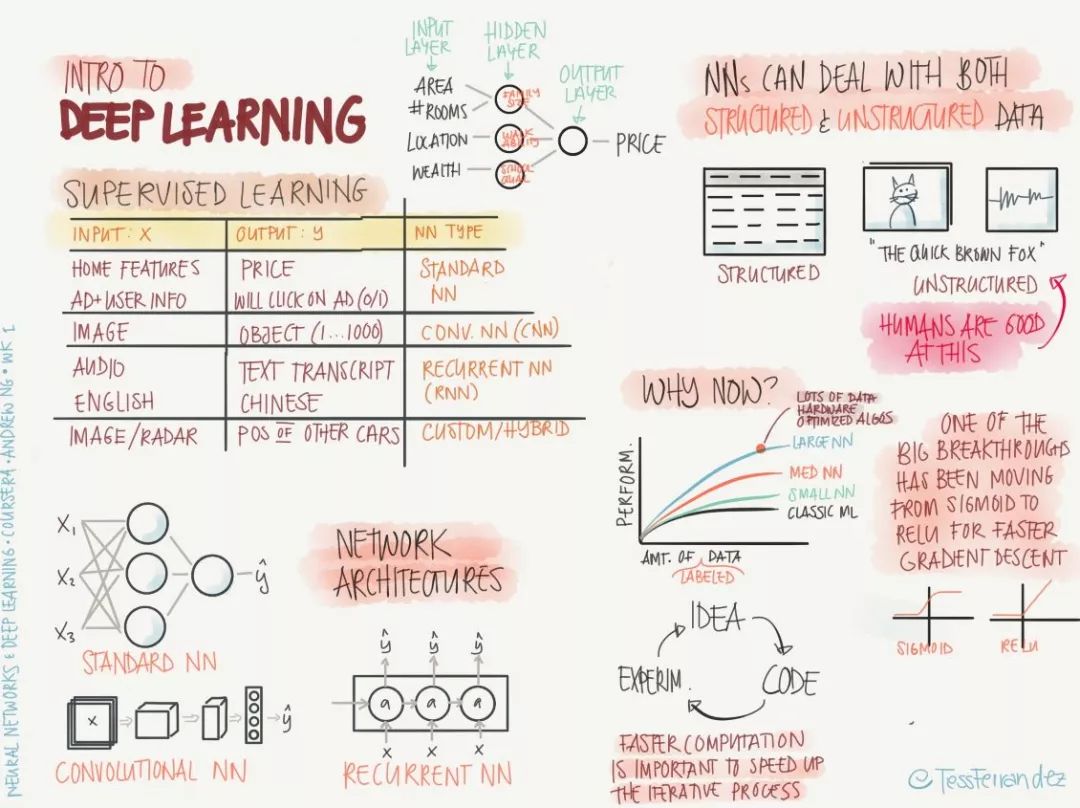 INTRO TO
DEEP LEARNING
INPUT LAYER
HIDDEN LAYER
OUTPUT LAYER
AREA
#ROOMS
LOCATION
WEALTH
FAMILY SIZE
WALK ABILITY
SCHOOL QUAL
PRICE
SUPERVISED LEARNING
INPUT: X OUTPUT: y NN TYPE
HOME FEATURES PRICE STANDARD
AD+USER INFO WILL CLICK ON AD (0/1) NN
IMAGE OBJECT (1...1000) CONV. NN (CNN)
AUDIO TEXT TRANSCRIPT RECURRENT NN
ENGLISH CHINESE (RNN)
IMAGE/RADAR POS OF OTHER CARS CUSTOM/HYBRID
NNs CAN DEAL WITH BOTH
STRUCTURED & UNSTRUCTURED DATA
STRUCTURED
"THE QUICK BROWN FOX"
UNSTRUCTURED
HUMANS ARE GOOD
AT THIS
WHY NOW?
LOTS OF DATA
HARDWARE
OPTIMIZED ALGOS
LARGE NN
MED NN
SMALL NN
CLASSIC ML
PERFORM.
AMT. OF DATA
LABELED
ONE OF THE
BIG BREAKTHROUGHS
HAS BEEN MOVING
FROM SIGMOID TO
RELU FOR FASTER
GRADIENT DESCENT
SIGMOID
RELU
NETWORK
ARCHITECTURES
X1
X2
X3
ŷ
STANDARD NN
X
ŷ
CONVOLUTIONAL NN
ŷ ŷ ŷ
a a a
X X X
RECURRENT NN
IDEA
CODE
EXPERIM.
FASTER COMPUTATION
IS IMPORTANT TO SPEED UP
THE ITERATIVE PROCESS
NEURAL NETWORKS & DEEP LEARNING · COURSERA · ANDREW NG · WK 1
@TessFerrandez